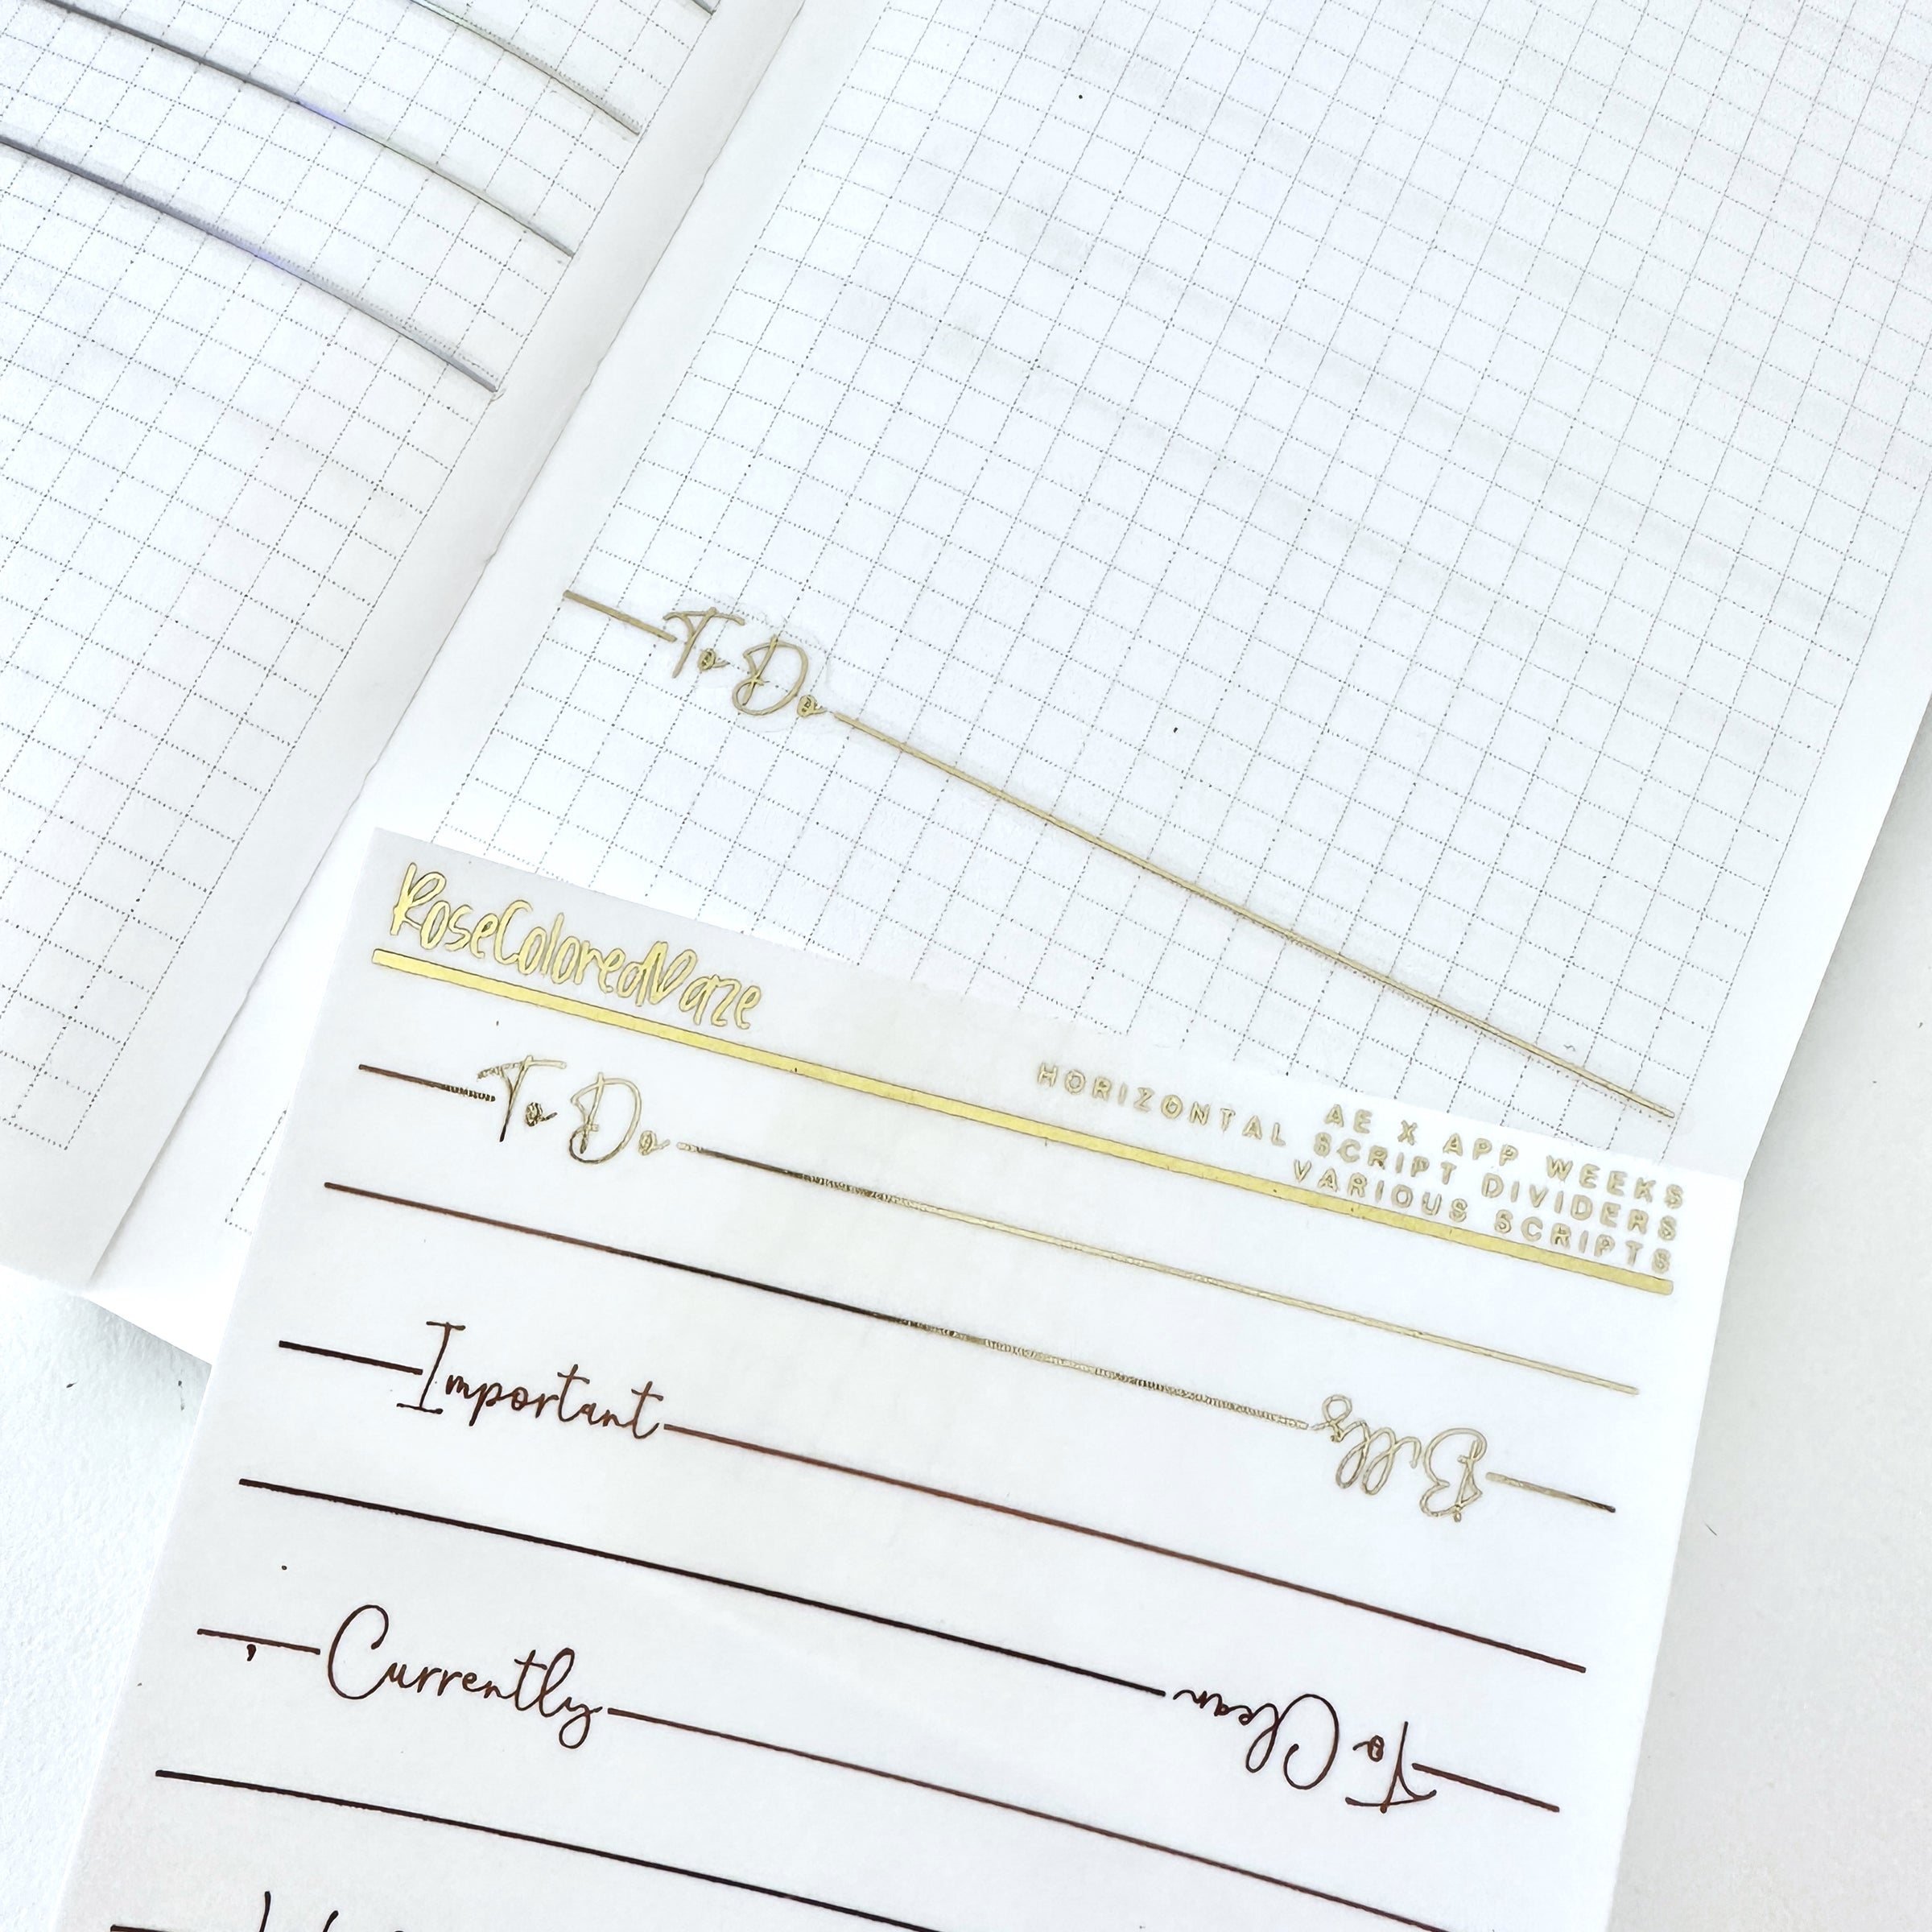 To Do
RoseColoredDaze
AE X APP WEEKS
HORIZONTAL SCRIPT DIVIDERS
VARIOUS SCRIPTS
To Do
Bills
Important
To Clean
Currently